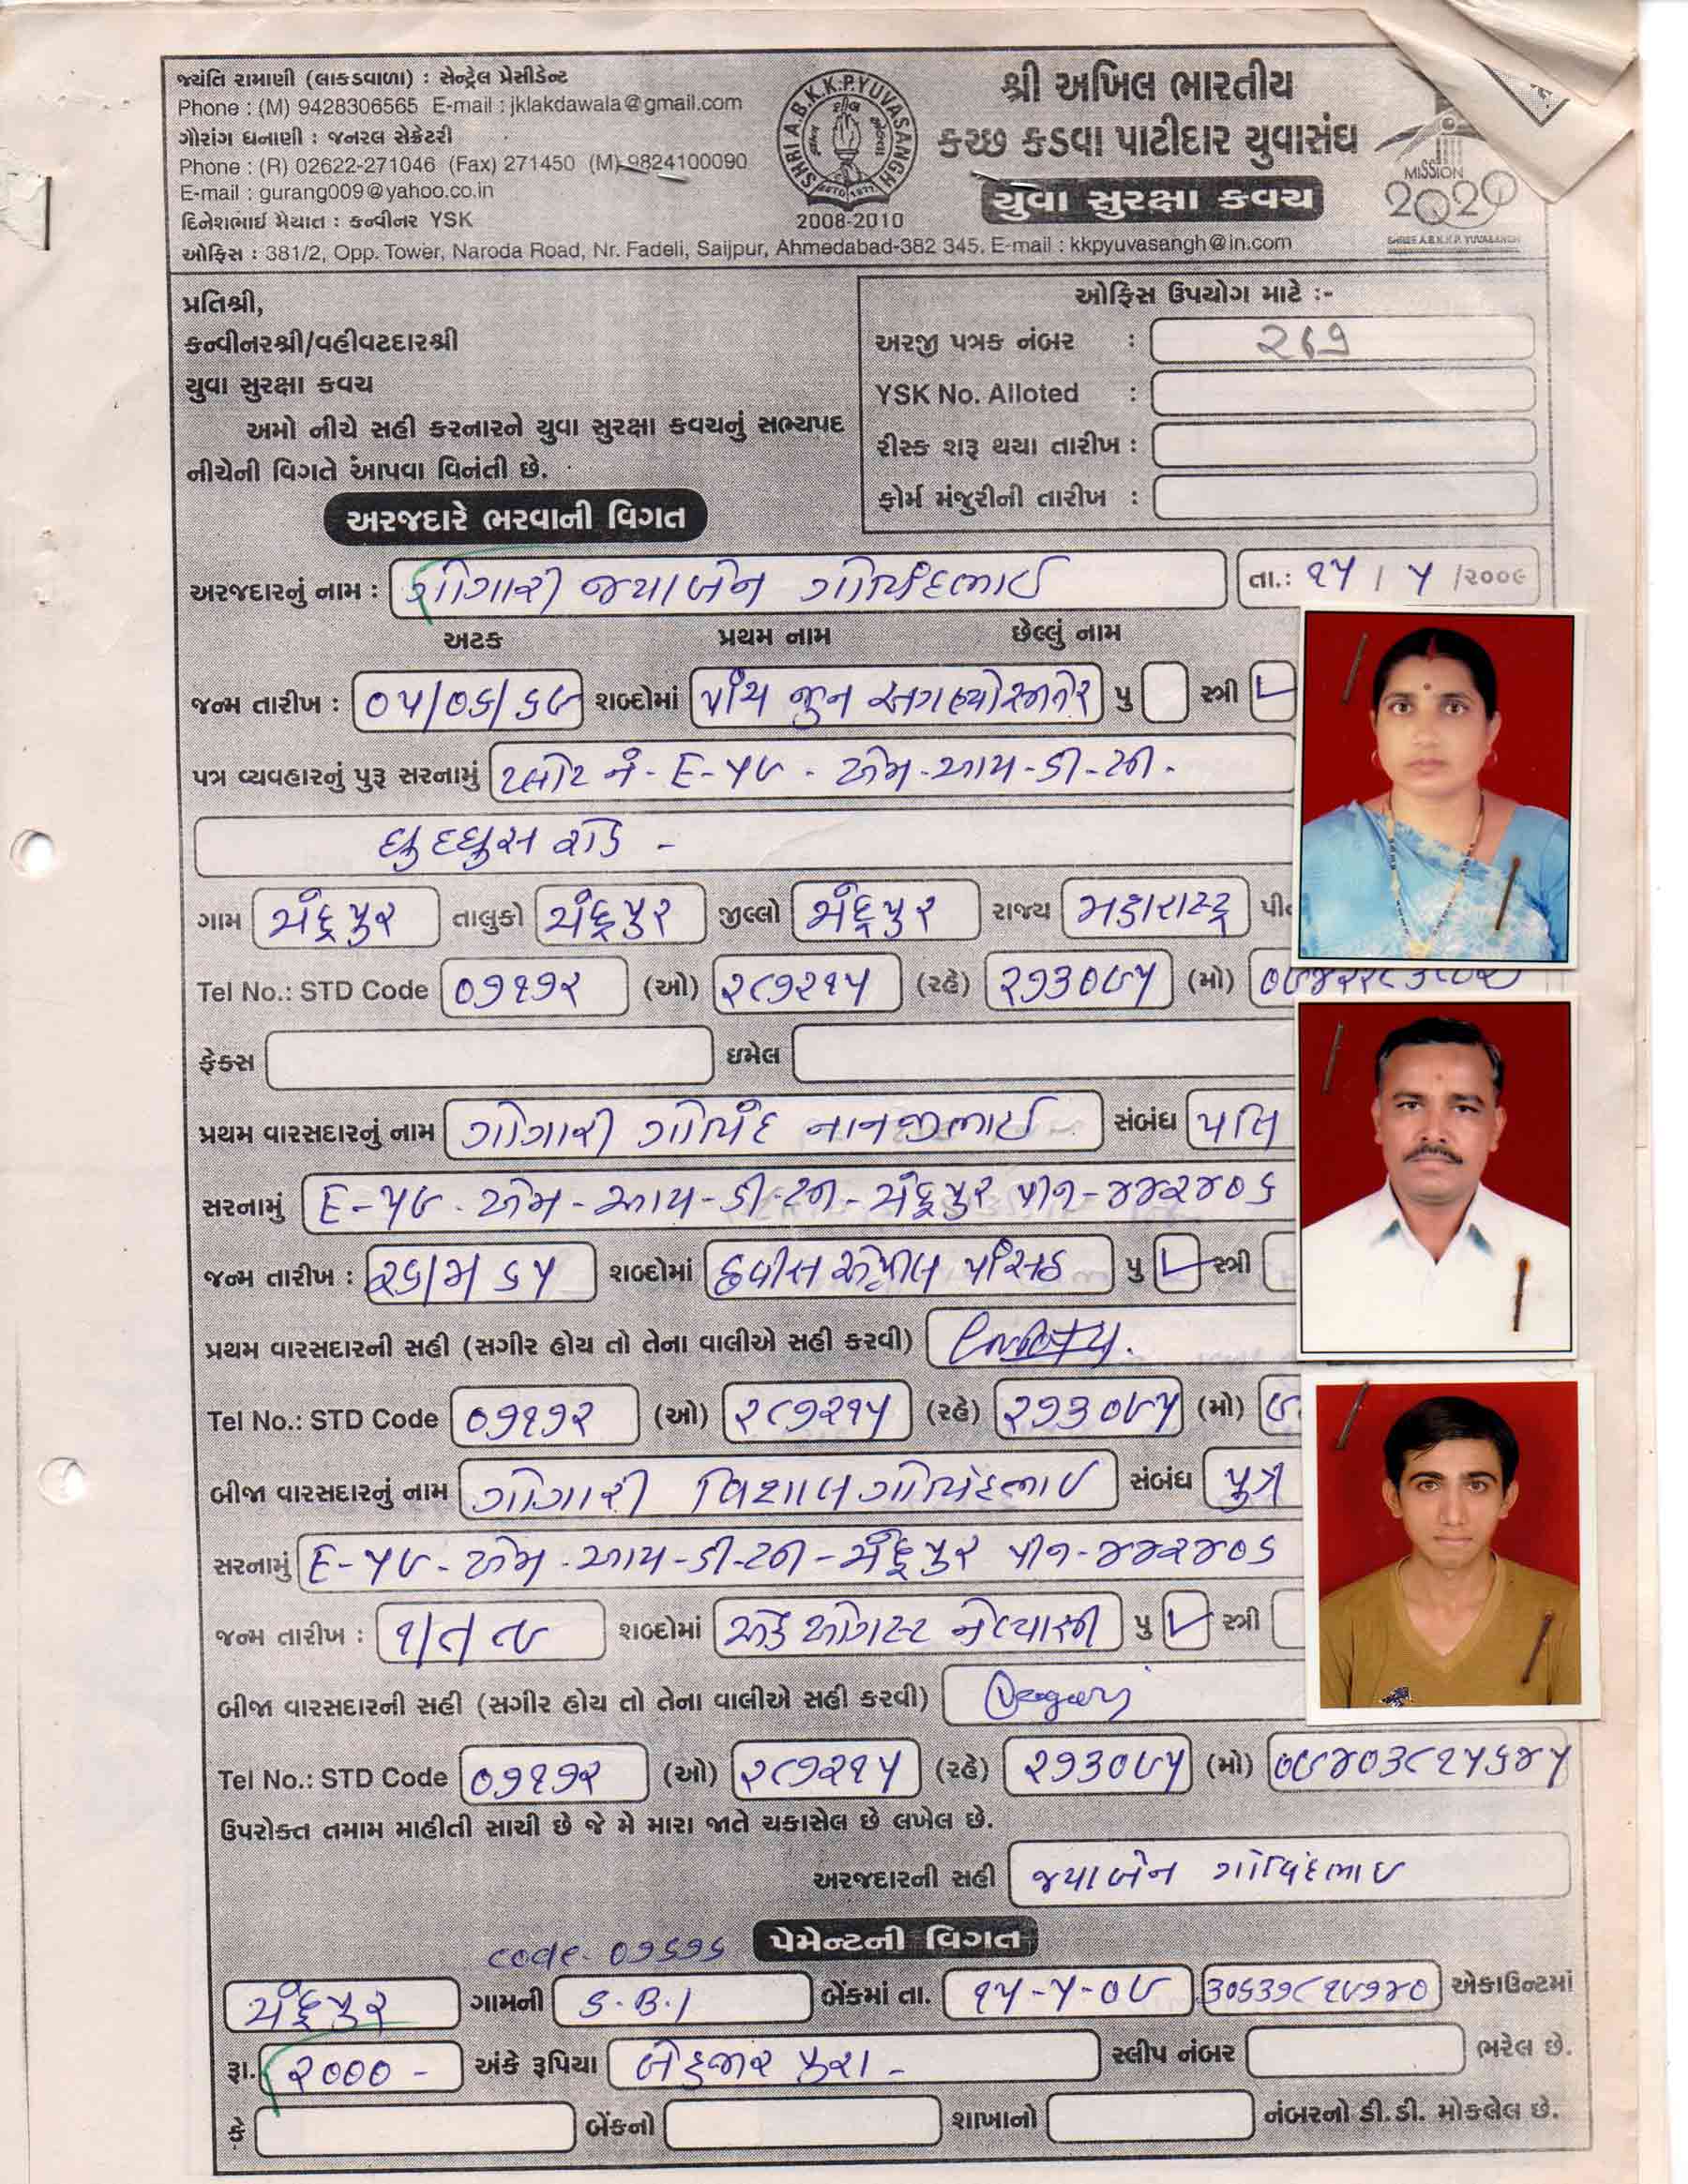 જયંતિ રામાણી (લાકડવાળા) : સેન્ટ્રેલ પ્રેસીડેન્ટ
Phone : (M) 9428306565 E-mail : jklakdawala@gmail.com
ગૌરાંગ ધનાણી : જનરલ સેક્રેટરી
Phone : (R) 02622-271046 (Fax) 271450 (M) 9824100090
E-mail : gurang009@yahoo.co.in
દિનેશભાઈ મેયાત : કન્વીનર YSK
SHRI A.B.K.K.P.YUVASANGH
ESTD. 1977
2008-2010
શ્રી અખિલ ભારતીય
કચ્છ કડવા પાટીદાર યુવાસંઘ
યુવા સુરક્ષા કવચ
MISSION
2020
SHREE A.B.K.K.P. YUVASANGH
ઓફિસ : 381/2, Opp. Tower, Naroda Road, Nr. Fadeli, Saijpur, Ahmedabad-382 345. E-mail : kkpyuvasangh@in.com
પ્રતિશ્રી,
કન્વીનરશ્રી/વહીવટદારશ્રી
યુવા સુરક્ષા કવચ
અમો નીચે સહી કરનારને યુવા સુરક્ષા કવચનું સભ્યપદ
નીચેની વિગતે આપવા વિનંતી છે.
ઓફિસ ઉપયોગ માટે :-
અરજી પત્રક નંબર : ૨૬૭
YSK No. Alloted :
રીસ્ક શરૂ થયા તારીખ :
ફોર્મ મંજુરીની તારીખ :
અરજદારે ભરવાની વિગત
અરજદારનું નામ : ગોગારી જયાબેન ગોવિંદભાઈ તા.: ૧૫ / ૫ /૨૦૦૯
અટક પ્રથમ નામ છેલ્લું નામ
જન્મ તારીખ : ૦૫/૦૬/૬૯ શબ્દોમાં પાંચ જુન અગણ્યોસીતેર પુ સ્ત્રી
પત્ર વ્યવહારનું પુરૂ સરનામું પ્લોટ નં - E-૫૯ - એમ-આય-ડી-સી -
ઘુદઘુસ રોડ -
ગામ ચંદ્રપુર તાલુકો ચંદ્રપુર જીલ્લો ચંદ્રપુર રાજ્ય મહારાષ્ટ્ર
Tel No.: STD Code ૦૭૧૭૨ (ઓ) ૨૮૭૨૧૫ (રહે) ૨૭૩૦૯૫ (મો)
ફેક્સ ઇમેલ
પ્રથમ વારસદારનું નામ ગોગારી ગોવિંદ નાનજીભાઈ સંબંધ પતિ
સરનામું E-૫૯ - એમ-આય-ડી-સી - ચંદ્રપુર પીન-૪૪૨૪૦૬
જન્મ તારીખ : ૨૬/૪/૬૫ શબ્દોમાં છવીસ એપ્રીલ પાંસઠ પુ સ્ત્રી
પ્રથમ વારસદારની સહી (સગીર હોય તો તેના વાલીએ સહી કરવી)
Tel No.: STD Code ૦૭૧૭૨ (ઓ) ૨૮૭૨૧૫ (રહે) ૨૭૩૦૯૫ (મો)
બીજા વારસદારનું નામ ગોગારી વિશાલ ગોવિંદભાઈ સંબંધ પુત્ર
સરનામું E-૫૯ - એમ-આય-ડી-સી - ચંદ્રપુર પીન-૪૪૨૪૦૬
જન્મ તારીખ : ૧/૮/૮૯ શબ્દોમાં એક ઓગસ્ટ નેવ્યાસી પુ સ્ત્રી
બીજા વારસદારની સહી (સગીર હોય તો તેના વાલીએ સહી કરવી)
Tel No.: STD Code ૦૭૧૭૨ (ઓ) ૨૮૭૨૧૫ (રહે) ૨૭૩૦૯૫ (મો) ૦૯૪૦૩૮૧૫૬૪૫
ઉપરોક્ત તમામ માહીતી સાચી છે જે મે મારા જાતે ચકાસેલ છે લખેલ છે.
અરજદારની સહી જયાબેન ગોવિંદભાઈ
પેમેન્ટની વિગત
code - ૦૭૬૭૬
ચંદ્રપુર ગામની S.B.I બેંકમાં તા. ૧૫-૫-૦૯ ૩૦૬૩૭૮૧૯૭૪૦ એકાઉન્ટમાં
રૂા. ૨૦૦૦ - અંકે રૂપિયા બે હજાર પુરા - સ્લીપ નંબર ભરેલ છે.
કે બેંકનો શાખાનો નંબરનો ડી.ડી. મોકલેલ છે.